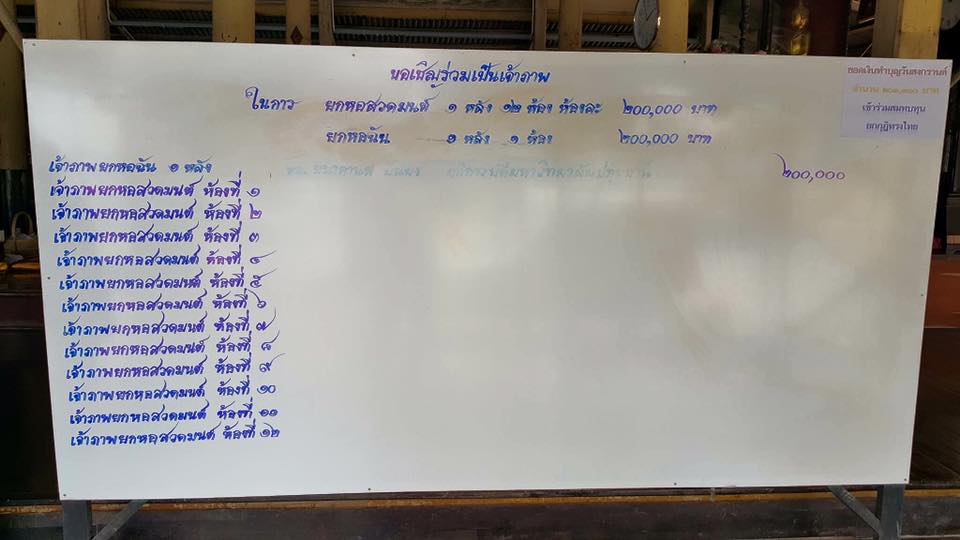 ขอเชิญร่วมเป็นเจ้าภาพ
ในการ ยกหอสวดมนต์ ๑ หลัง ๑๒ ห้อง ห้องละ ๒๐๐,๐๐๐ บาท
ยกหอฉัน ๑ หลัง ๑ ห้อง ๒๐๐,๐๐๐ บาท
ยอดเงินทำบุญวันสงกรานต์
จำนวน บาท
เข้าร่วมสมทบทุน
ยกกุฏิทรงไทย
เจ้าภาพยกหอฉัน ๑ หลัง ๒๐๐,๐๐๐
เจ้าภาพยกหอสวดมนต์ ห้องที่ ๑
เจ้าภาพยกหอสวดมนต์ ห้องที่ ๒
เจ้าภาพยกหอสวดมนต์ ห้องที่ ๓
เจ้าภาพยกหอสวดมนต์ ห้องที่ ๔
เจ้าภาพยกหอสวดมนต์ ห้องที่ ๕
เจ้าภาพยกหอสวดมนต์ ห้องที่ ๖
เจ้าภาพยกหอสวดมนต์ ห้องที่ ๗
เจ้าภาพยกหอสวดมนต์ ห้องที่ ๘
เจ้าภาพยกหอสวดมนต์ ห้องที่ ๙
เจ้าภาพยกหอสวดมนต์ ห้องที่ ๑๐
เจ้าภาพยกหอสวดมนต์ ห้องที่ ๑๑
เจ้าภาพยกหอสวดมนต์ ห้องที่ ๑๒